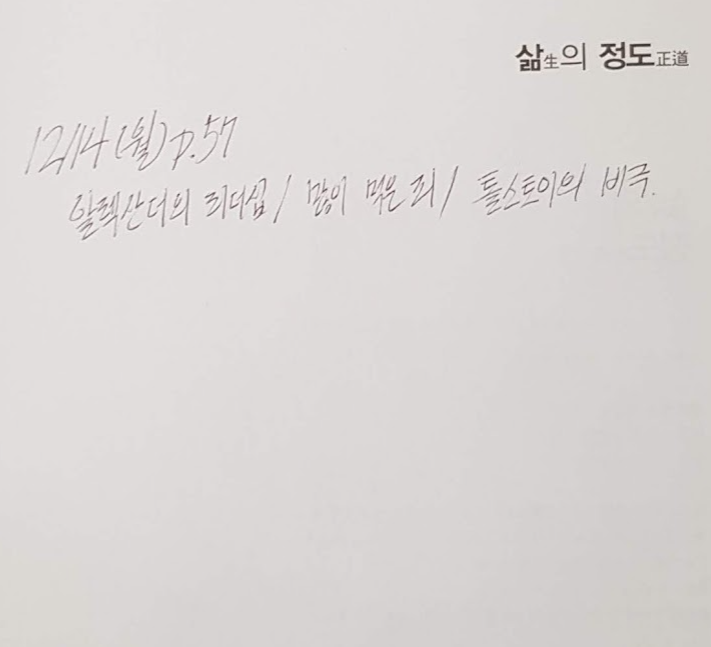 삶生의 정도正道
12/14 (월) p.57
알렉산더의 리더십 / 많이 먹은 죄 / 톨스토이의 비극.